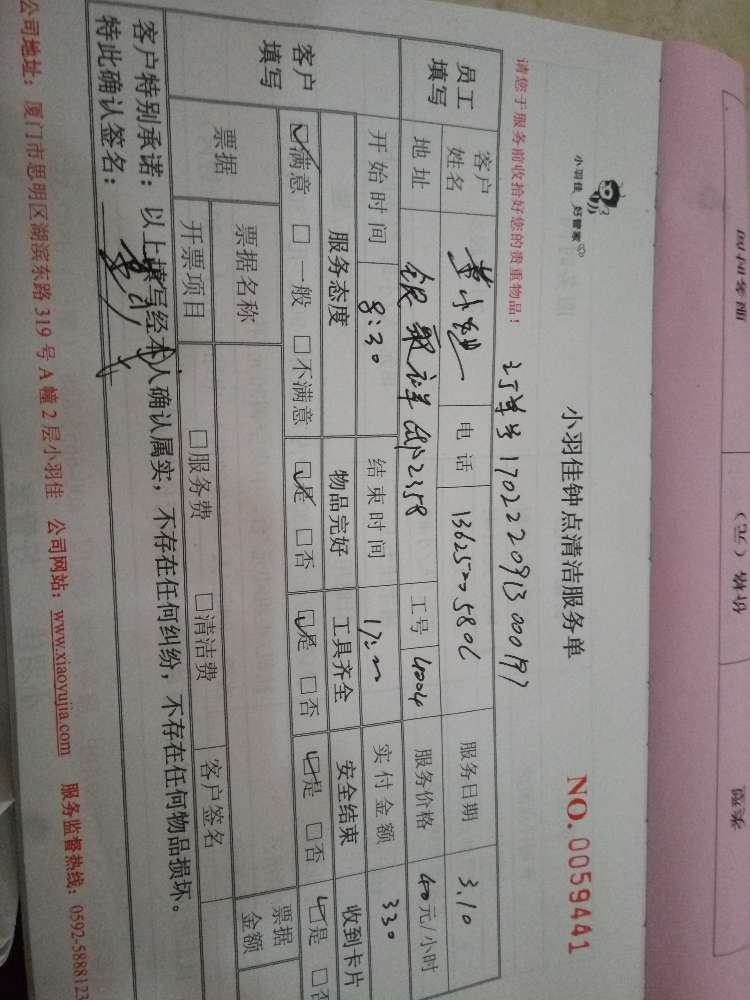 小羽佳 好管家
小羽佳钟点清洁服务单
NO. 0059441
请您于服务前收拾好您的贵重物品!
订单号170222091300019
员工填写
客户姓名 电话 服务日期 3.10
地址 2358 工号 4004 服务价格 40元/小时
客户填写
开始时间 8:30 结束时间 17:00 实付金额 330
服务态度 物品完好 工具齐全 安全结束 收到卡片
☑满意 □一般 □不满意 ☑是 □否 ☑是 □否 ☑是 □否 ☑是 □否
票据 票据名称 票据金额
开票项目 □服务费 □清洁费 客户签名
客户特别承诺:以上填写经本人确认属实,不存在任何纠纷,不存在任何物品损坏。
特此确认签名:
公司地址:厦门市思明区湖滨东路319号A幢2层小羽佳 公司网站:www.xiaoyujia.com 服务监督热线:0592-5888123